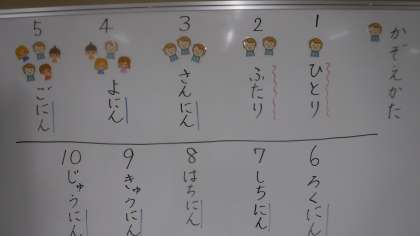 かぞえかた
1 ひとり
2 ふたり
3 さんにん
4 よにん
5 ごにん
6 ろくにん
7 しちにん
8 はちにん
9 きゅうにん
10 じゅうにん